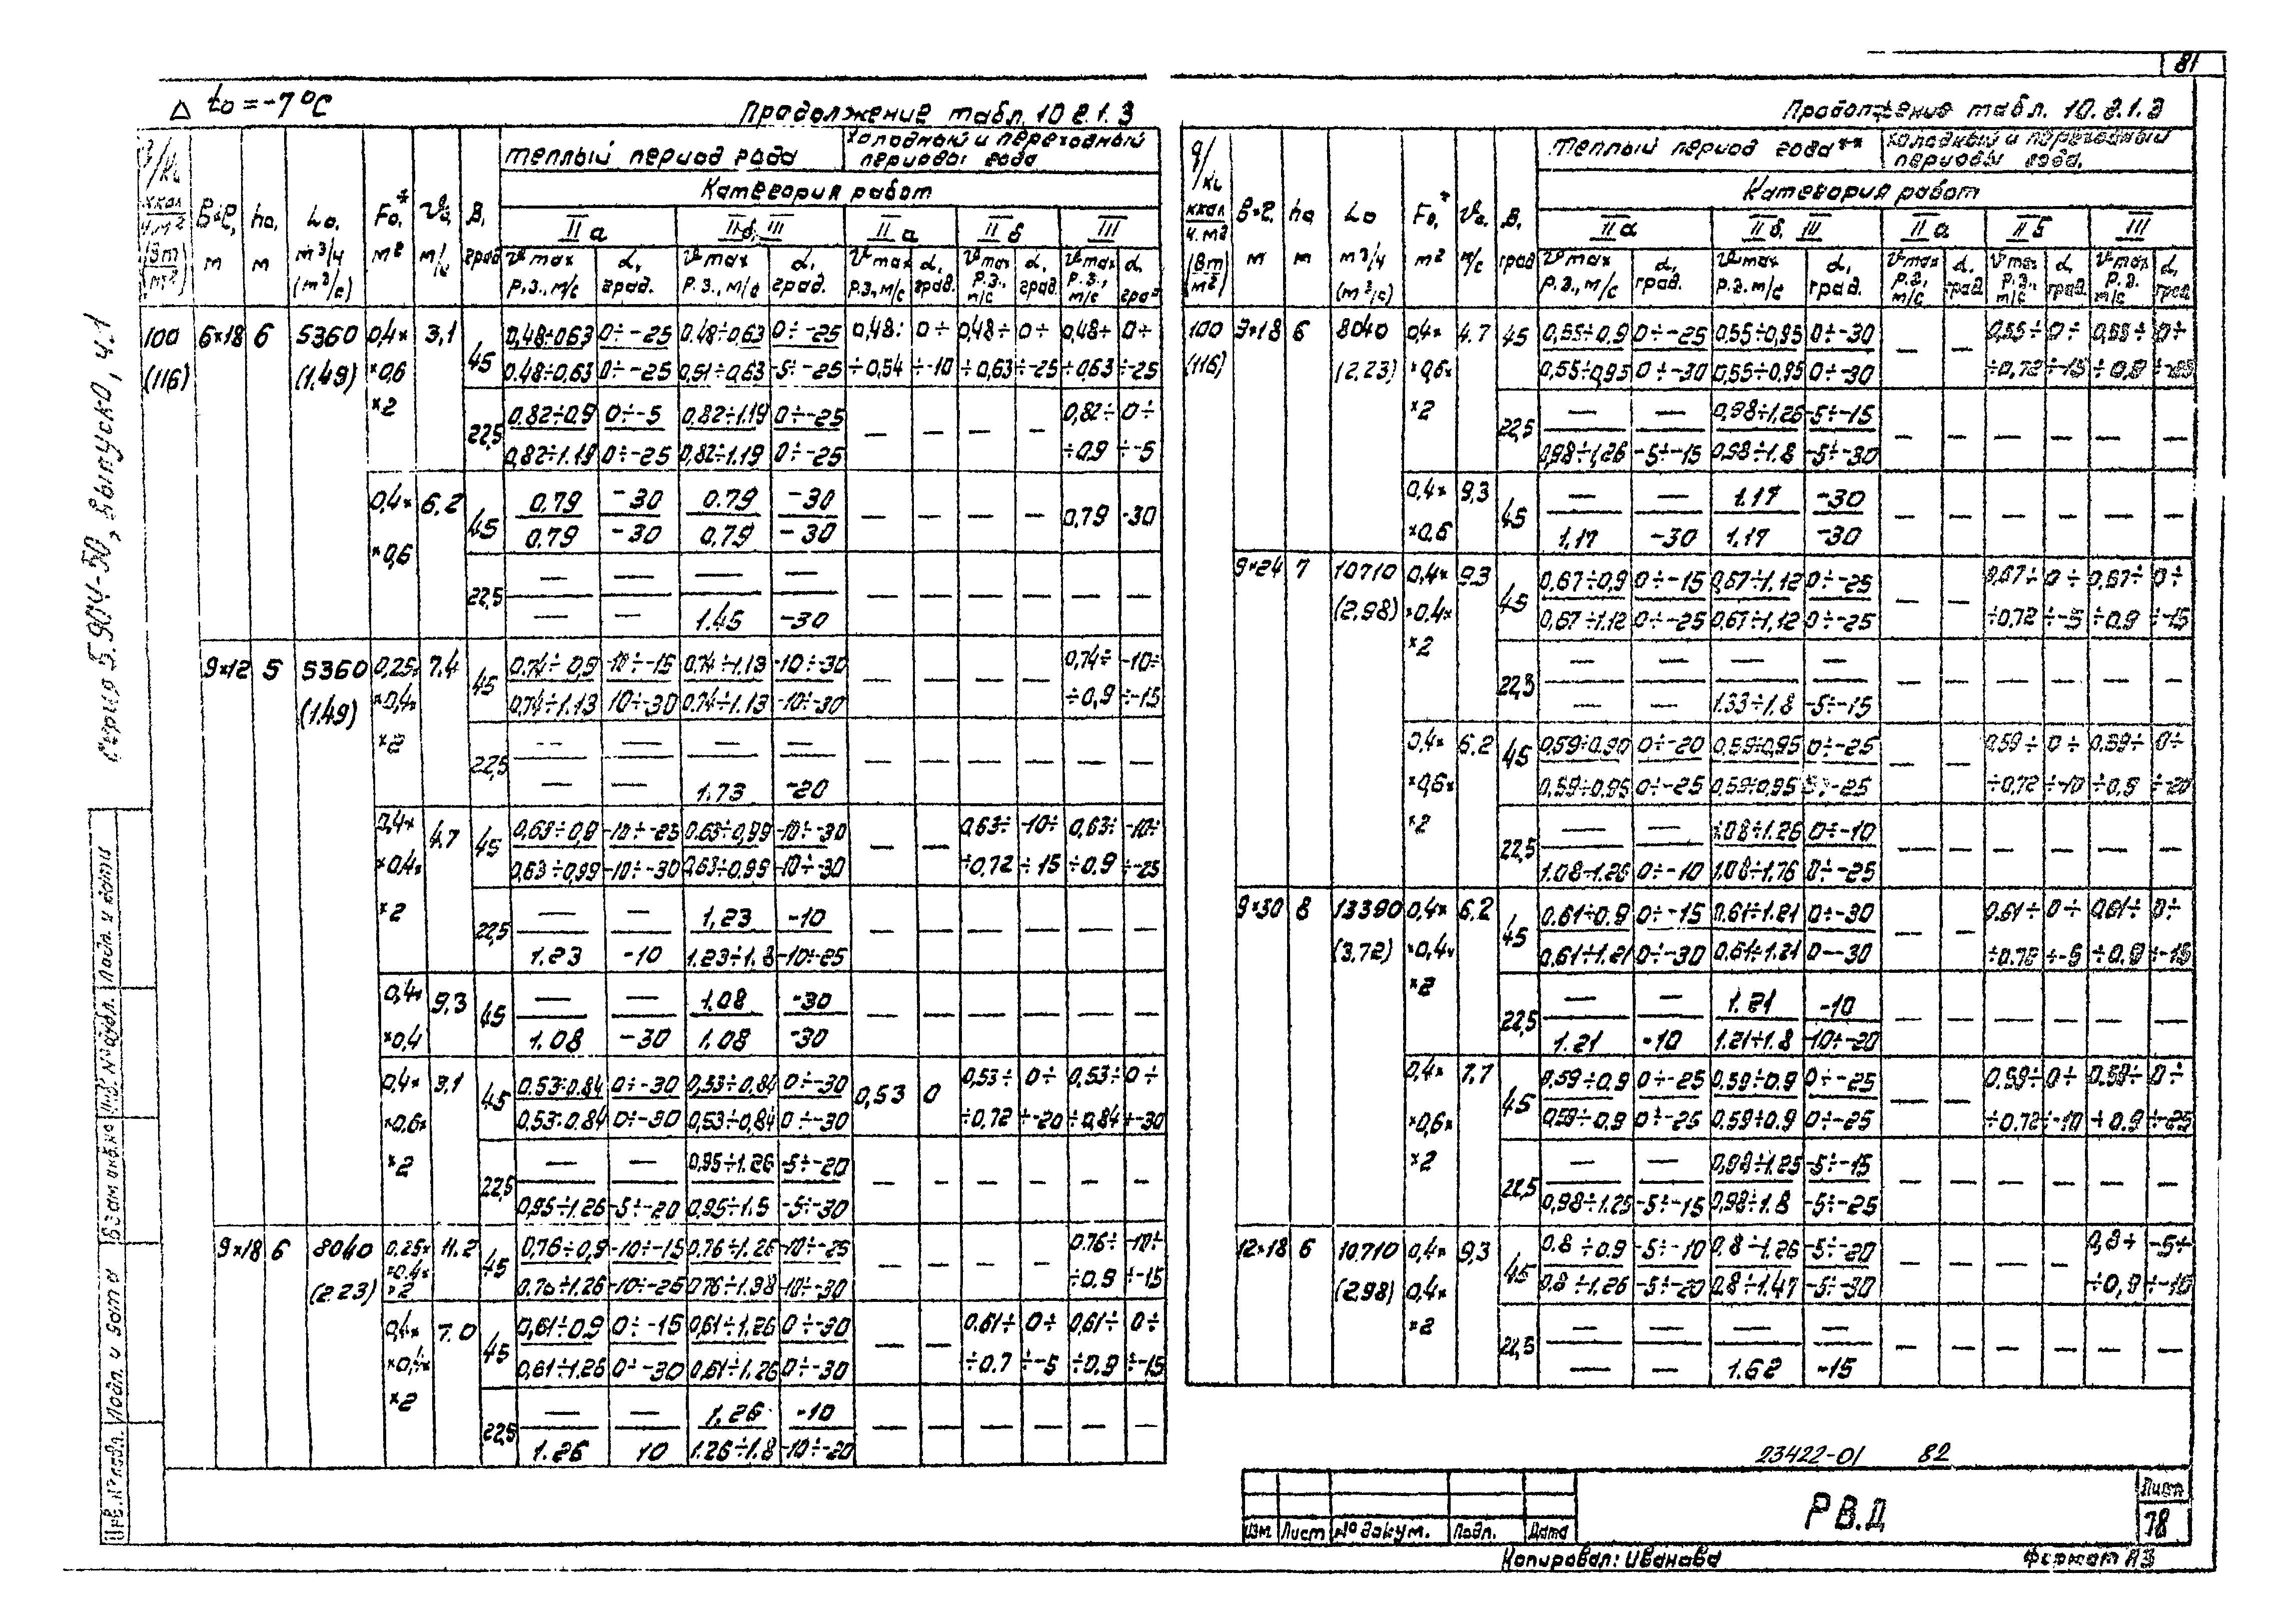 81
Δ to = -7°C
Продолжение табл. 10.2.1.3
Продолжение табл. 10.2.1.3
теплый период года
холодный и переходный периоды года
Категория работ
IIа IIб, III IIа IIб III
ккал/ч.м² (Вт/м²) В×ℓ, м hо, м Lо, м³/ч (м³/с) Fо*, м² υо, м/с β, град
υmax р.з., м/с α, град. υmax р.з., м/с α, град. υmax р.з., м/с α, град. υmax р.з., м/с α, град υmax р.з., м/с α, град
100 (116) 6×18 6 5360 (1.49) 0,4××0,6×2 3,1 45 0,48÷0,63 0÷-25 0,48÷0,63 0÷-25 0,48÷0,54 0÷-10 0,48÷0,63 0÷-25 0,48÷0,63 0÷-25
0.48÷0,63 0÷-25 0,51÷0,63 -5÷-25
22,5 0.82÷0,9 0÷-5 0.82÷1.19 0÷-25 — — — — 0,82÷0.9 0÷-5
0,82÷1.19 0÷-25 0,82÷1.19 0÷-25
0,4××0,6 6.2 45 0,79 -30 0.79 -30 — — — — 0,79 -30
0.79 -30 0.79 -30
22,5 — — — — — — — — — —
— — 1.45 -30
9×12 5 5360 (1.49) 0,25××0,4××2 7.4 45 0.74÷0,9 -10÷-15 0.74÷1.13 -10÷-30 — — — — 0,74÷0,9 -10÷-15
0,74÷1.13 10÷-30 0.74÷1.13 -10÷-30
22,5 — — — — — — — — — —
— — 1.73 -20
0,4××0,4××2 4.7 45 0,63÷0,9 -10÷-25 0.63÷0,99 -10÷-30 — — 0,63÷0.72 -10÷15 0,63÷0.9 -10÷-25
0,63÷0,99 -10÷-30 0,63÷0.99 -10÷-30
22,5 — — 1,23 -10 — — — — — —
1.23 -10 1.23÷1.8 -10÷-25
0,4××0,4 9,3 45 — — 1.08 -30 — — — — — —
1.08 -30 1.08 -30
0,4××0,6××2 3,1 45 0.53÷0.84 0÷-30 0,53÷0,84 0÷-30 0,53 0 0,53÷0,72 0÷-20 0,53÷0,84 0÷-30
0.53÷0.84 0÷-30 0,53÷0,84 0÷-30
22,5 — — 0,95÷1.26 -5÷-20 — — — — — —
0,95÷1.26 -5÷-20 0,95÷1.5 -5÷-30
9×18 6 8040 (2.23) 0.25××0.4××2 11.2 45 0,76÷0,9 -10÷-15 0.76÷1.26 -10÷-25 — — — — 0.76÷0.9 -10÷-15
0.76÷1.26 -10÷-25 0.76÷1.38 -10÷-30
0,4××0,4××2 7.0 45 0,61÷0,9 0÷-15 0,61÷1.26 0÷-30 — — 0.61÷0.7 0÷-5 0,61÷0.9 0÷-15
0,61÷1.26 0÷-30 0,61÷1.26 0÷-30
22,5 — — 1.26 -10 — — — — — —
1.26 10 1.26÷1.8 -10÷-20
теплый период года**
холодный и переходный периоды года.
Категория работ
IIа IIб, III IIа IIб III
q/кL ккал/ч.м² (Вт/м²) В×ℓ, м hо м Lо м³/ч (м³/с) Fо*, м² υо, м/с β, град
υmax р.з., м/с α, град. υmax р.з. м/с α, град. υmax р.з., м/с α, град υmax р.з., м/с α, град. υmax р.з. м/с α, град
100 (116) 9×18 6 8040 (2.23) 0,4××0,6××2 4.7 45 0,55÷0,9 0÷-25 0,55÷0,95 0÷-30 — — 0,55÷0,72 0÷-15 0,55÷0,9 0÷-25
0,55÷0,95 0÷-30 0,55÷0.95 0÷-30
22,5 — — 0,98÷1.26 -5÷-15 — — — — — —
0,98÷1,26 -5÷-15 0,98÷1.8 -5÷-30
0,4××0,6 9,3 45 — — 1.17 -30 — — — — — —
1,17 -30 1.17 -30
9×24 7 10710 (2.98) 0,4××0.4××2 9.3 45 0,67÷0,9 0÷-15 0,67÷1,12 0÷-25 — — 0,67÷0,72 0÷-5 0,67÷0.9 0÷-15
0,67÷1.12 0÷-25 0,67÷1,12 0÷-25
22,5 — — — — — — — — — —
— — 1.33÷1.8 -5÷-15
0,4××0,6××2 6.2 45 0,59÷0,90 0÷-20 0,59÷0,95 0÷-25 — — 0,59÷0,72 0÷-10 0,59÷0,9 0÷-20
0,59÷0,95 0÷-25 0,59÷0,95 0÷-25
22,5 — — 1.08÷1.26 0÷-10 — — — — — —
1.08-1.26 0÷-10 1.08÷1,76 0÷-25
9×30 8 13390 (3.72) 0,4××0,4××2 6.2 45 0.61÷0.9 0÷-15 0.61÷1.21 0÷-30 — — 0,61÷0.72 0÷-5 0,61÷0.9 0÷-15
0.61÷1.21 0÷-30 0.61÷1.21 0—30
22,5 — — 1.21 -10 — — — — — —
1.21 -10 1.21÷1.8 -10÷-20
0,4××0,6××2 7.7 45 0.59÷0.9 0÷-25 0.59÷0.9 0÷-25 — — 0.59÷0.72 0÷-10 0.59÷0.9 0÷-25
0,59÷0.9 0÷-25 0.59÷0.9 0÷-25
22,5 — — 0,98÷1.25 -5÷-15 — — — — — —
0,98÷1.25 -5÷-15 0,98÷1.8 -5÷-25
12×18 6 10710 (2.98) 0,4×0,4××2 9,3 45 0.8÷0.9 -5÷-10 0.8÷1.26 -5÷-20 — — — — 0,8÷0,9 -5÷-10
0.8÷1.26 -5÷-20 0.8÷1.47 -5÷-30
22,5 — — — — — — — — — —
— — 1.62 -15
Серия 5.904-50, выпуск 0, ч.1
Взам инв.№
Подп. и дата
Инв. № подл.
23422-01 82
Изм. Лист № докум. Подп. Дата
РВ.Д
Лист
78
Копировал: Иванова
Формат А3